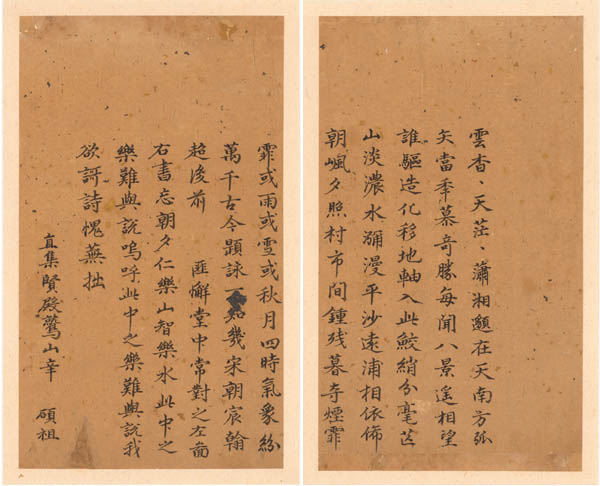 雲杳〻天茫〻瀟湘邈在天南方弧
矢當年慕奇勝每聞八景遙相望
誰驅造化移地軸入此鮫綃分毫芒
山淡濃水瀰漫平沙遠浦相依俙
朝嵐夕照村市間鍾殘暮寺煙霏
霏或雨或雪或秋月四時氣象紛
萬千古今題詠幾宋朝宸翰
超後前 匪懈堂中常對之左圖
右書忘朝夕仁樂山智樂水此中之
樂難與說嗚呼此中之樂難與說我
欲謌詩愧蕪拙
直集賢殿鷲山辛 碩祖